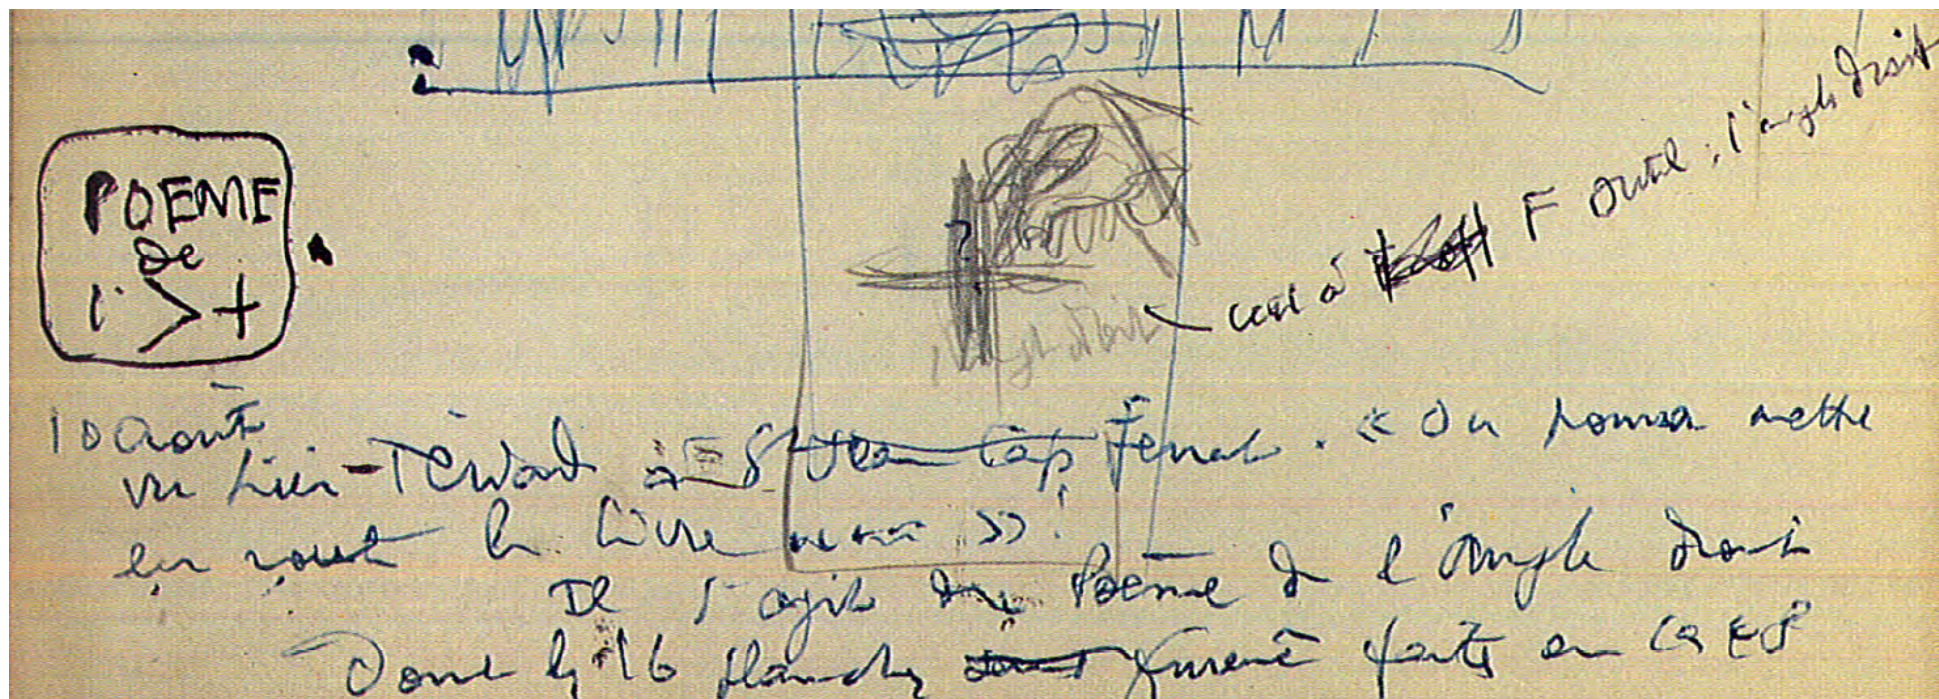 POEME
de
l' > +
ceci à F outil : l'angle droit
l'angle droit
10 août
vu hier Tériade à St Jean Cap Ferrat. « On pourra mettre
en route le livre »!
Il s'agit du Poème de l'Angle droit
Dont les 16 planches furent faites en